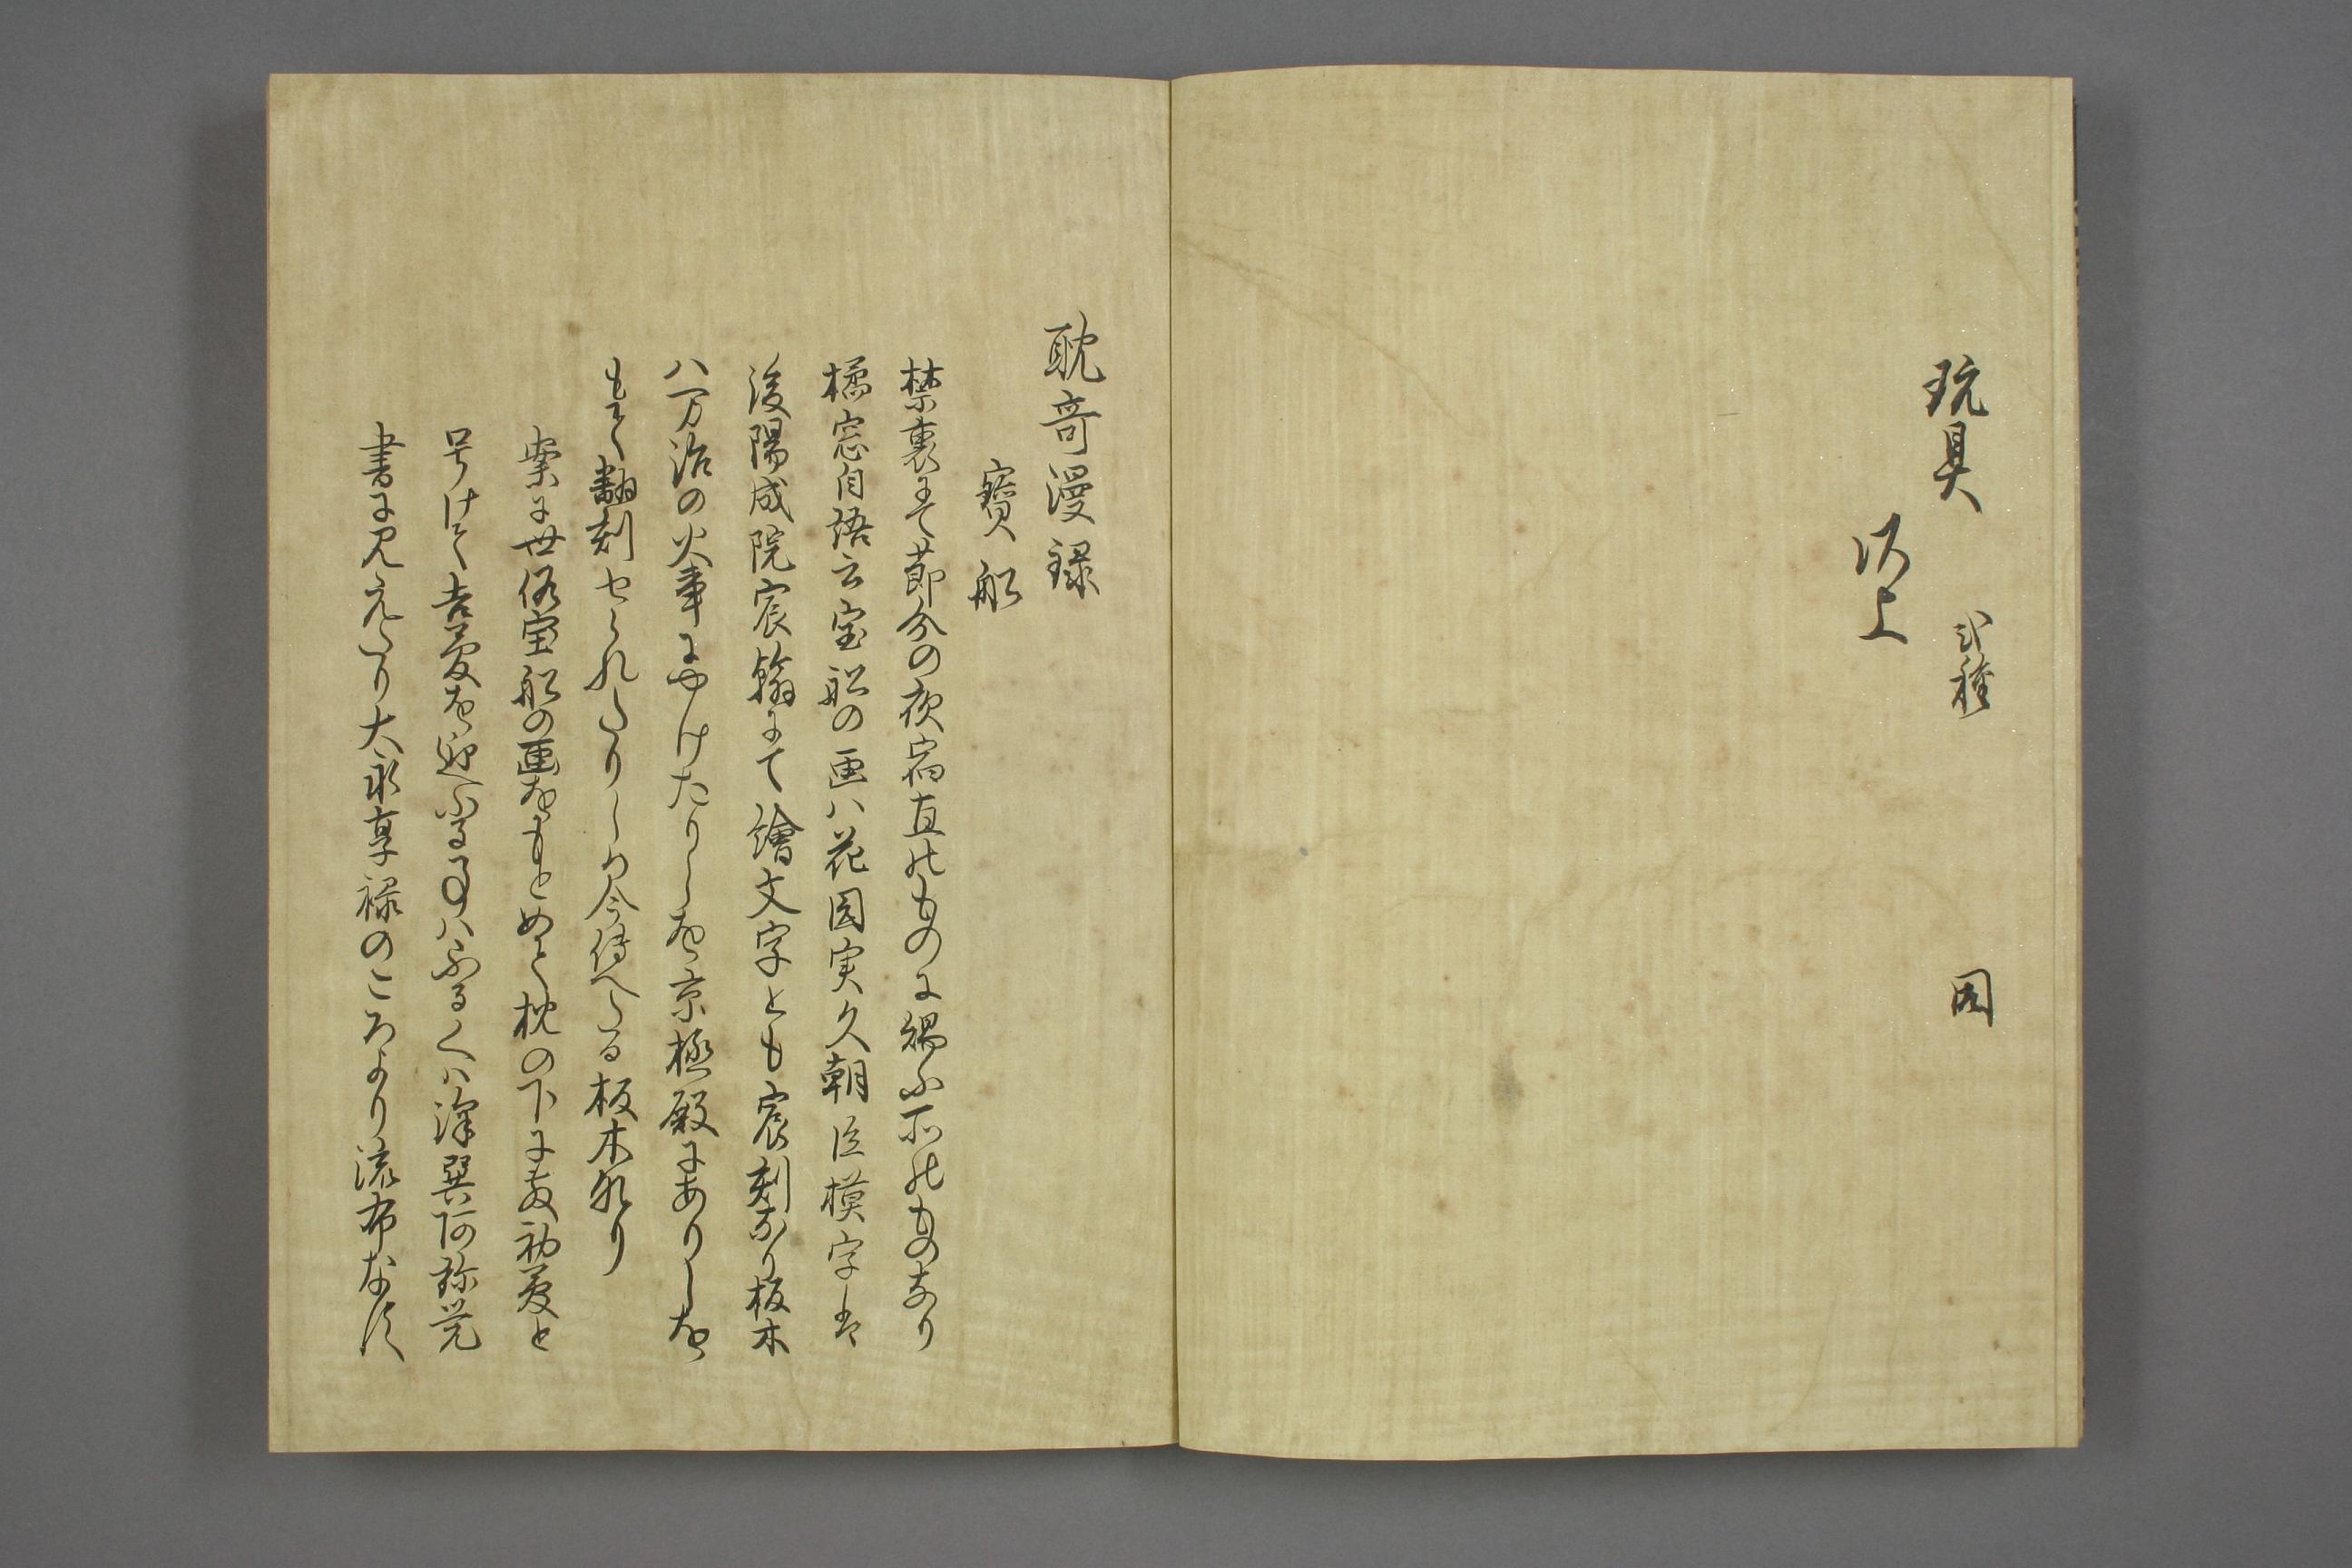 玩具 弐種 同
以上
耽奇漫録
寶船
禁裏にて節分の夜宿直のものに賜ふ所のものなり
橘窓自語云宝船の画ハ花園実久朝臣模字は
後陽成院宸翰にて繪文字とも宸刻なり板木
ハ万治の火事にやけたりしを京極殿にありしを
もて翻刻せられたりしか今傳へたる板木なり
案に世俗宝船の画をもとめて枕の下に敷初夢と
号けて吉夢を迎ふる事ハふるくハ澤巽阿弥覚
書に見えたり大永享禄のころより流布なす